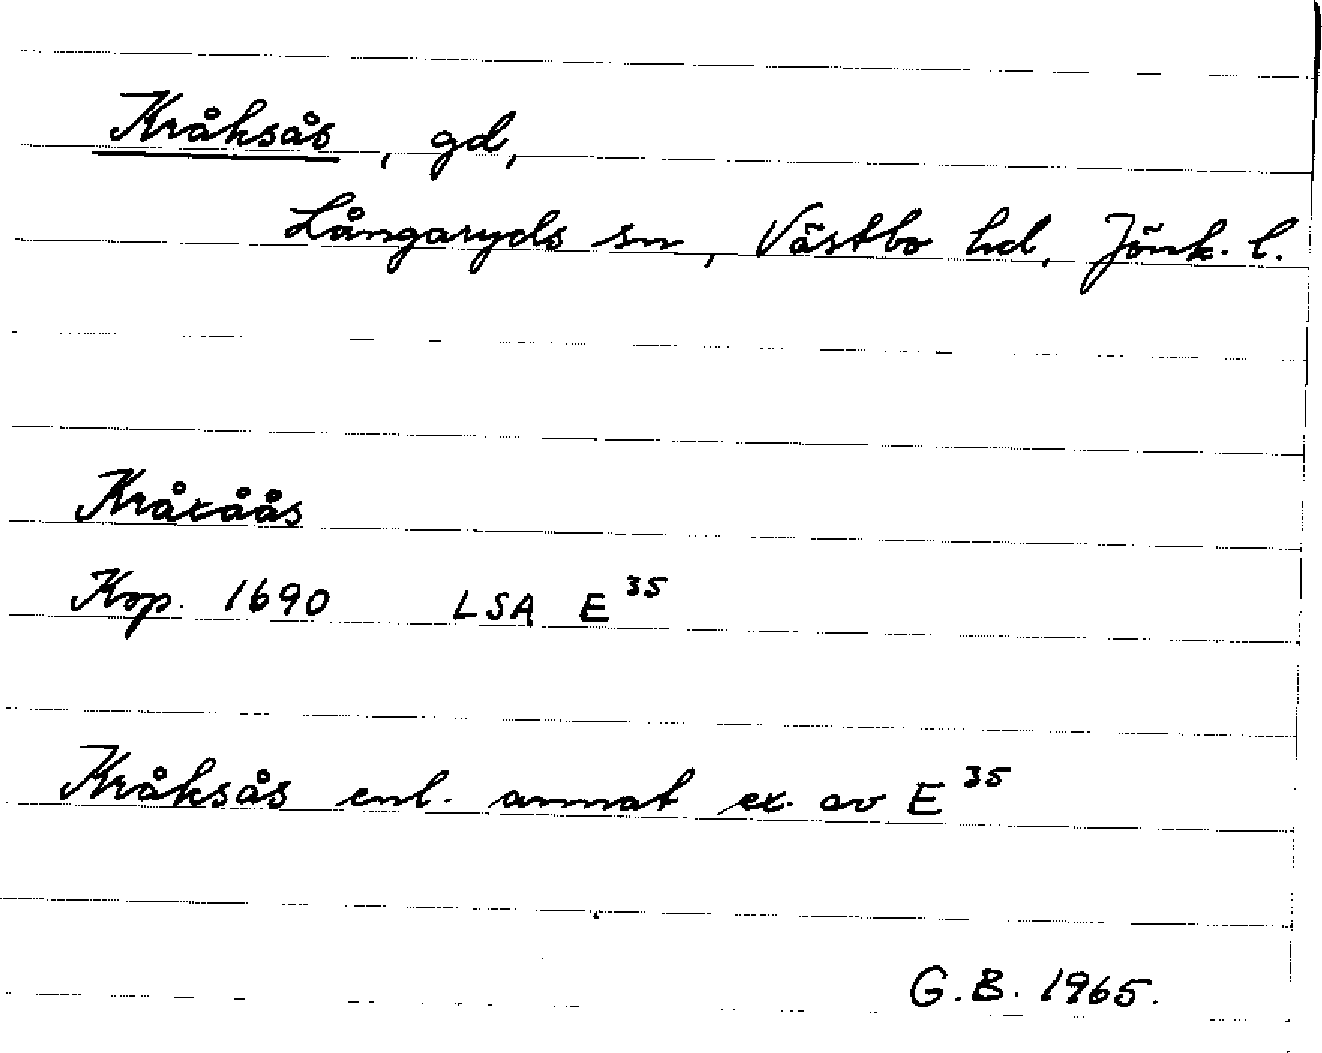 Kråksås, gd,
Långaryds sn, Västbo hd, Jönk. l.
Kråxåås
Kop. 1690 LSA E 35
Kråksås enl. annat ex. av E 35
G.B. 1965.